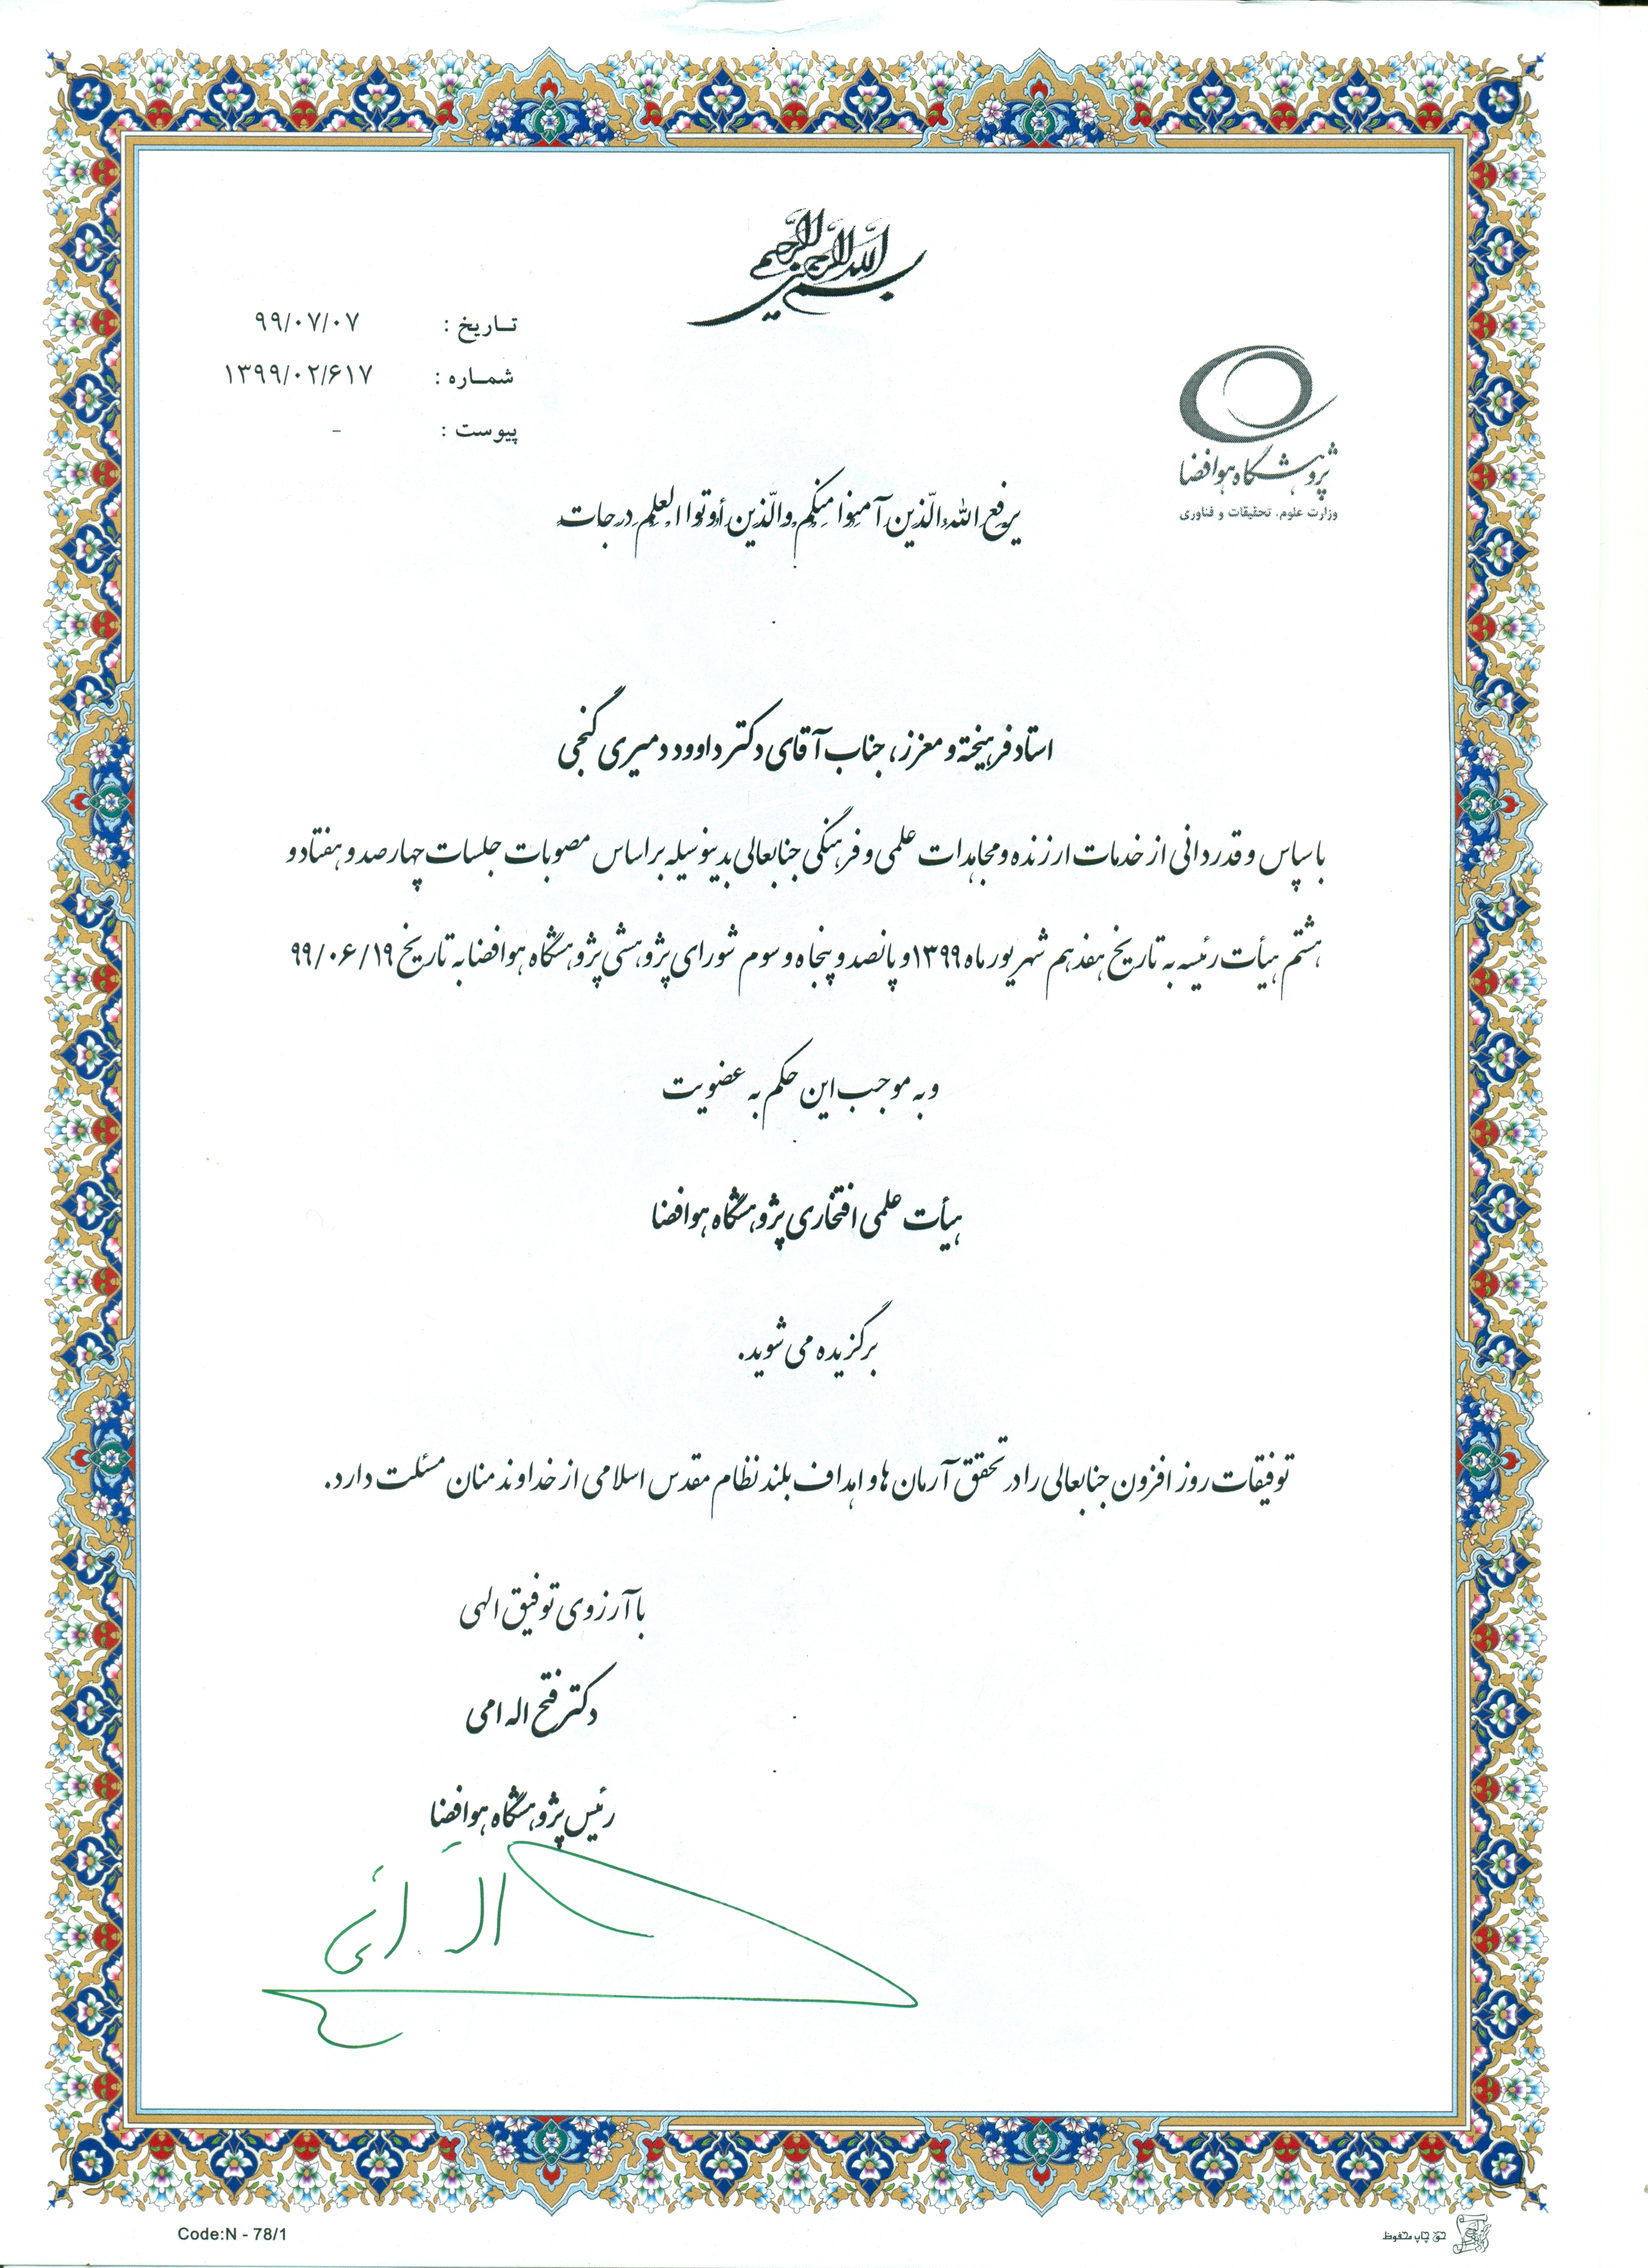 بسم الله الرحمن الرحیم
تاریخ : ۹۹/۰۷/۰۷
شماره : ۱۳۹۹/۰۲/۶۱۷
پیوست : -
پژوهشگاه هوافضا
وزارت علوم، تحقیقات و فناوری
یرفع الله الّذین آمنوا منکم والّذین أوتوا العلم درجات
استاد فرهیخته و معزز، جناب آقای دکتر داوود دمیری گنجی
با سپاس و قدردانی از خدمات ارزنده و مجاهدات علمی و فرهنگی جنابعالی بدینوسیله بر اساس مصوبات جلسات چهارصد و هفتاد و
هشتم هیأت رئیسه به تاریخ هفدهم شهریور ماه ۱۳۹۹ و پانصد و پنجاه و سوم شورای پژوهشی پژوهشگاه هوافضا به تاریخ ۹۹/۰۶/۱۹
و به موجب این حکم به عضویت
هیأت علمی افتخاری پژوهشگاه هوافضا
برگزیده می شوید.
توفیقات روز افزون جنابعالی را در تحقق آرمان ها و اهداف بلند نظام مقدس اسلامی از خداوند منان مسئلت دارد.
با آرزوی توفیق الهی
دکتر فتح اله امی
رئیس پژوهشگاه هوافضا
Code:N - 78/1
حق چاپ محفوظ